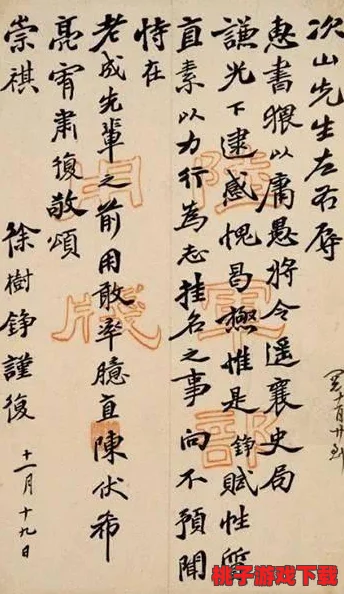 次山先生左右辱
惠書猥以庸愚將令遥襄史局
謙光下逮感愧曷極惟是錚賦性
直素以力行為志挂名之事向不預聞
恃在
老成先輩之前用敢率臆直陳伏希
亮宥肅復敬頌
崇祺
徐樹錚謹復
十一月十九日
陸軍部
用牋
桃子游戏下载